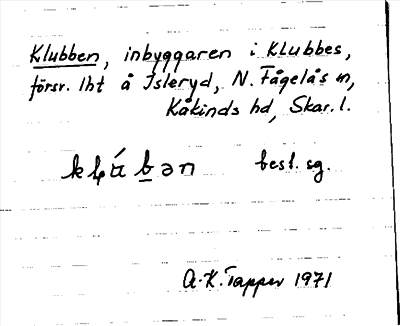 Klubben, inbyggaren i Klubbes,
försv. lht å Isleryd, N. Fågelås sn,
Kåkinds hd, Skar. l.
best. sg.
A-K. Tapper 1971